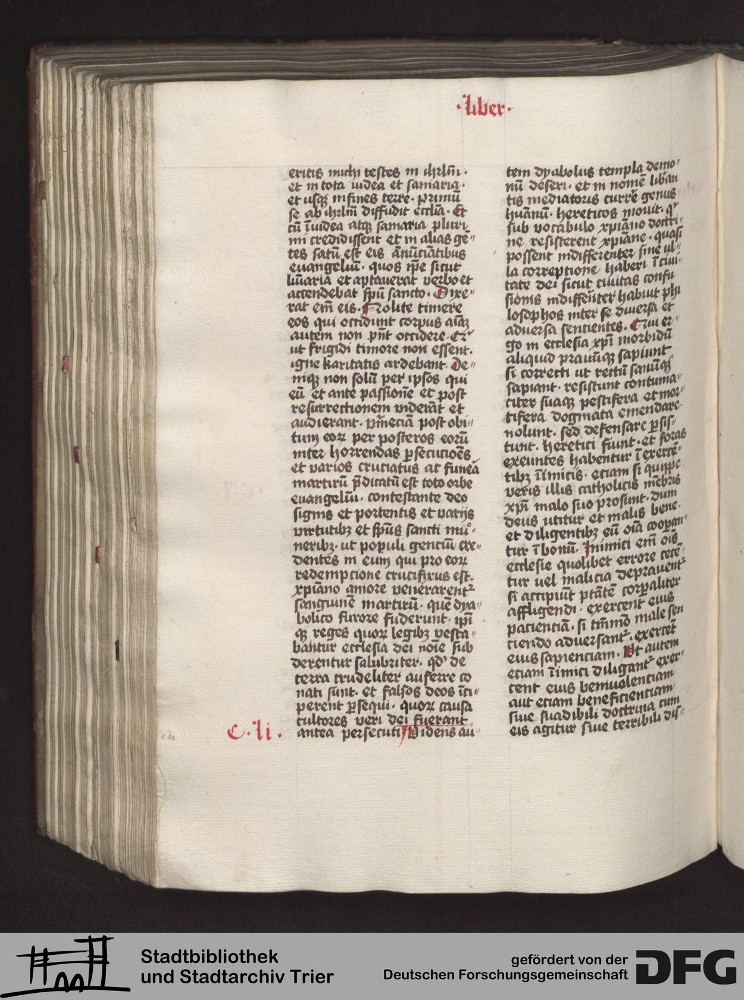 ·liber·
eritis michi testes in ihrlm̄·
et in tota iudea et samaria·
et usq; in fines terre· primū
se ab ihrlm̄ diffudit eccl̄ia· Et
cū ī iudea atq; samaria pluri
mi credidissent et in alias gē-
tes iatū est eis ānūciātibus
euangeliū· quos ip̄e sicut
lūīaria et aptauerat verbo et
accendebat sp̄u sancto· Dixe-
rat em̄ eis· Nolite timere
eos qui occidūt corpus aīaꝫ
autem non pn̄t occidere· Et
ut frigidi timore non essent·
igne karitatis ardebant· De-
niq; non solū per ipsos qui
eū et ante passionē et post
resurrectionem viderāt et
audierant· post obi-
tum eoꝝ per posteros eorū
inter horrendas ꝑsecucioēs
et varios cruciatus ac funea
martirū p̄dicatū est toto orbe
euangeliū· contestante deo
signis et portentis et varijs
virtutibꝫ et sp̄us sancti mu-
neribꝫ· ut populi genciū cre-
dentes in eum qui pro eoꝝ
redempcione crucifixus est·
xpīano amore venerarent᷑
sanguinē martirū· quē dya-
bolico furore fuderunt· ip̄i
q; reges quoꝝ legibꝫ vasta-
bantur ecclesia dei noīe sub
derentur salubriter· qd̓ de
terra crudeliter auferre co
nati sunt· et falsos deos īci-
perent ꝑsequi· quoꝝ causa
cultores veri dei fuerant
C·li· antea persecuti Videns au-
tem dyabolus templa demo-
nū deseri· et in nomē libāti
tis mediatoris currē genus
hūanū· hereticos mouit· qͥ
sub vocabulo xpīano doctri-
ne resisterent xpīane· quasi
possent indifferenter sine ul-
la correptione haberi ī ciui-
tate dei sicut ciuitas confu
sionis indiffēnter habuit phi
losophos inter se diuersa et
aduersa sentientes· Qui er-
go in ecclesia xp̄i morbidū
aliquid prauūq; sapiunt
si correcti ut rectū sanūq;
sapiant· resistunt contuma-
citer suaq; pestifera et mor-
tifera dogmata emendare
nolunt· sed defensare ꝑsis-
tunt· heretici fiunt· et foras
exeuntes habentur ī exercē-
tibꝫ īimicis· etiam si quippe
veris illis catholicis mēbris
xp̄i malo suo prosunt· dum
deus utitur et malis bene·
et diligentibꝫ eū oīa coopan-
tur ī bonū· Inimici em̄ oēs
ecclesie quolibet errore cecē-
tur uel malicia deprauent᷑
si accipiūt p̄tātē corꝑaliter
affligendi· exercent eius
pacienciā· si tm̄mō male sen
ciendo aduersant᷑· exercēt
eius sapienciam· Ut autem
etiam īimici diligant᷑ exer-
cent eius beniuolenciam
aut etiam beneficienciam·
siue suadibili doctrina cum
eis agitur siue terribili dis-
Stadtbibliothek
und Stadtarchiv Trier
gefördert von der
Deutschen Forschungsgemeinschaft
DFG